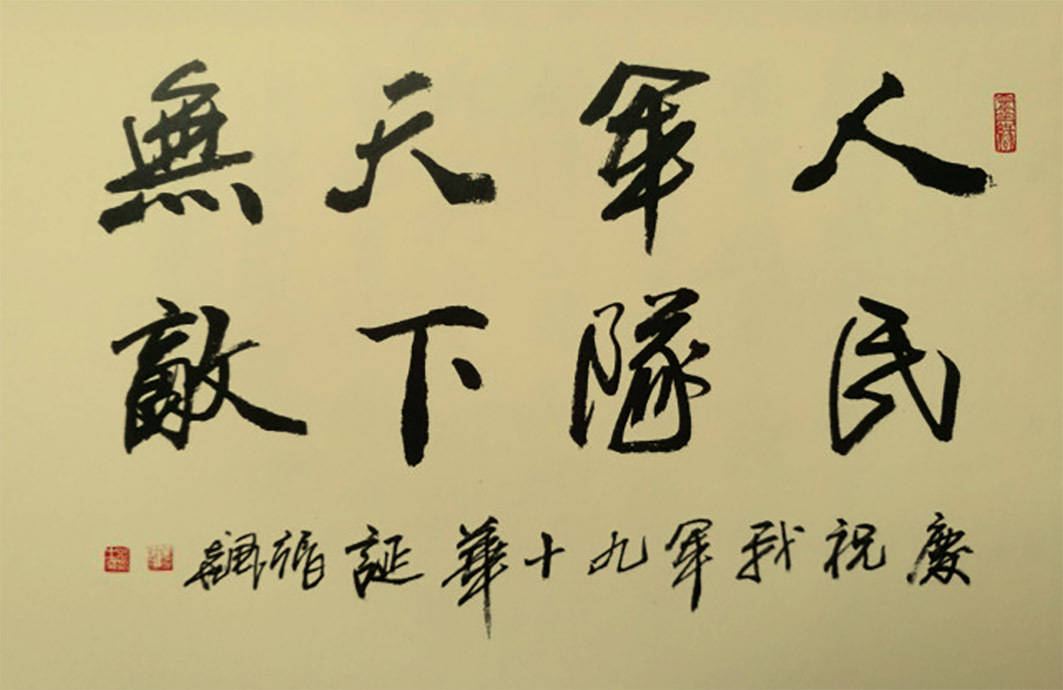 人民
軍隊
天下
無敵
慶祝我軍九十華誕